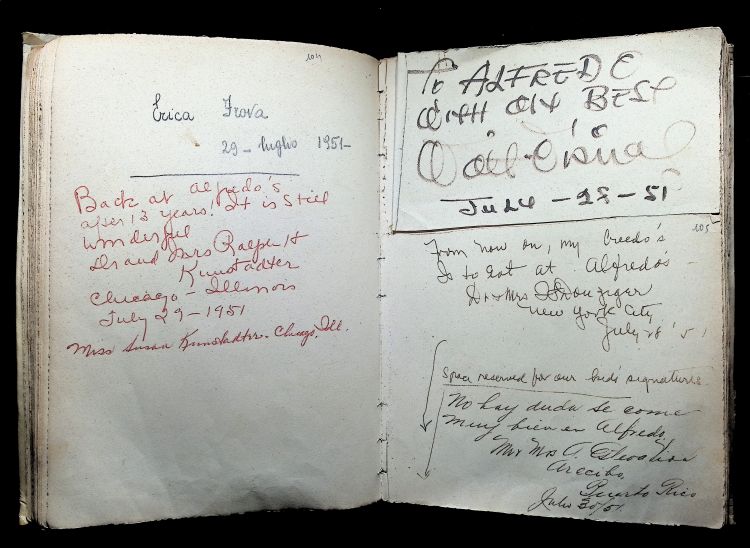 104
Erica Frova
29 - luglio 1951-
Back at Alfredo's
after 13 years! It is still
wonderful
Dr and Mrs Ralph H
Kunstadter
Chicago - Illinois
July 29 - 1951
Miss Susan Kunstadter - Chicago, Ill.
To ALFREDO
WITH MY BEST
July - 28 - 51
105
From now on, my Creedo's
Is to Eat at Alfredo's
Dr & Mrs Danziger
New York City
July 28 '51
Space reserved for our kids' signatures.
No hay duda se come
muy bien en Alfredo.
Mr Mrs A.
Arecibo,
Puerto Rico
Julio 30/51.